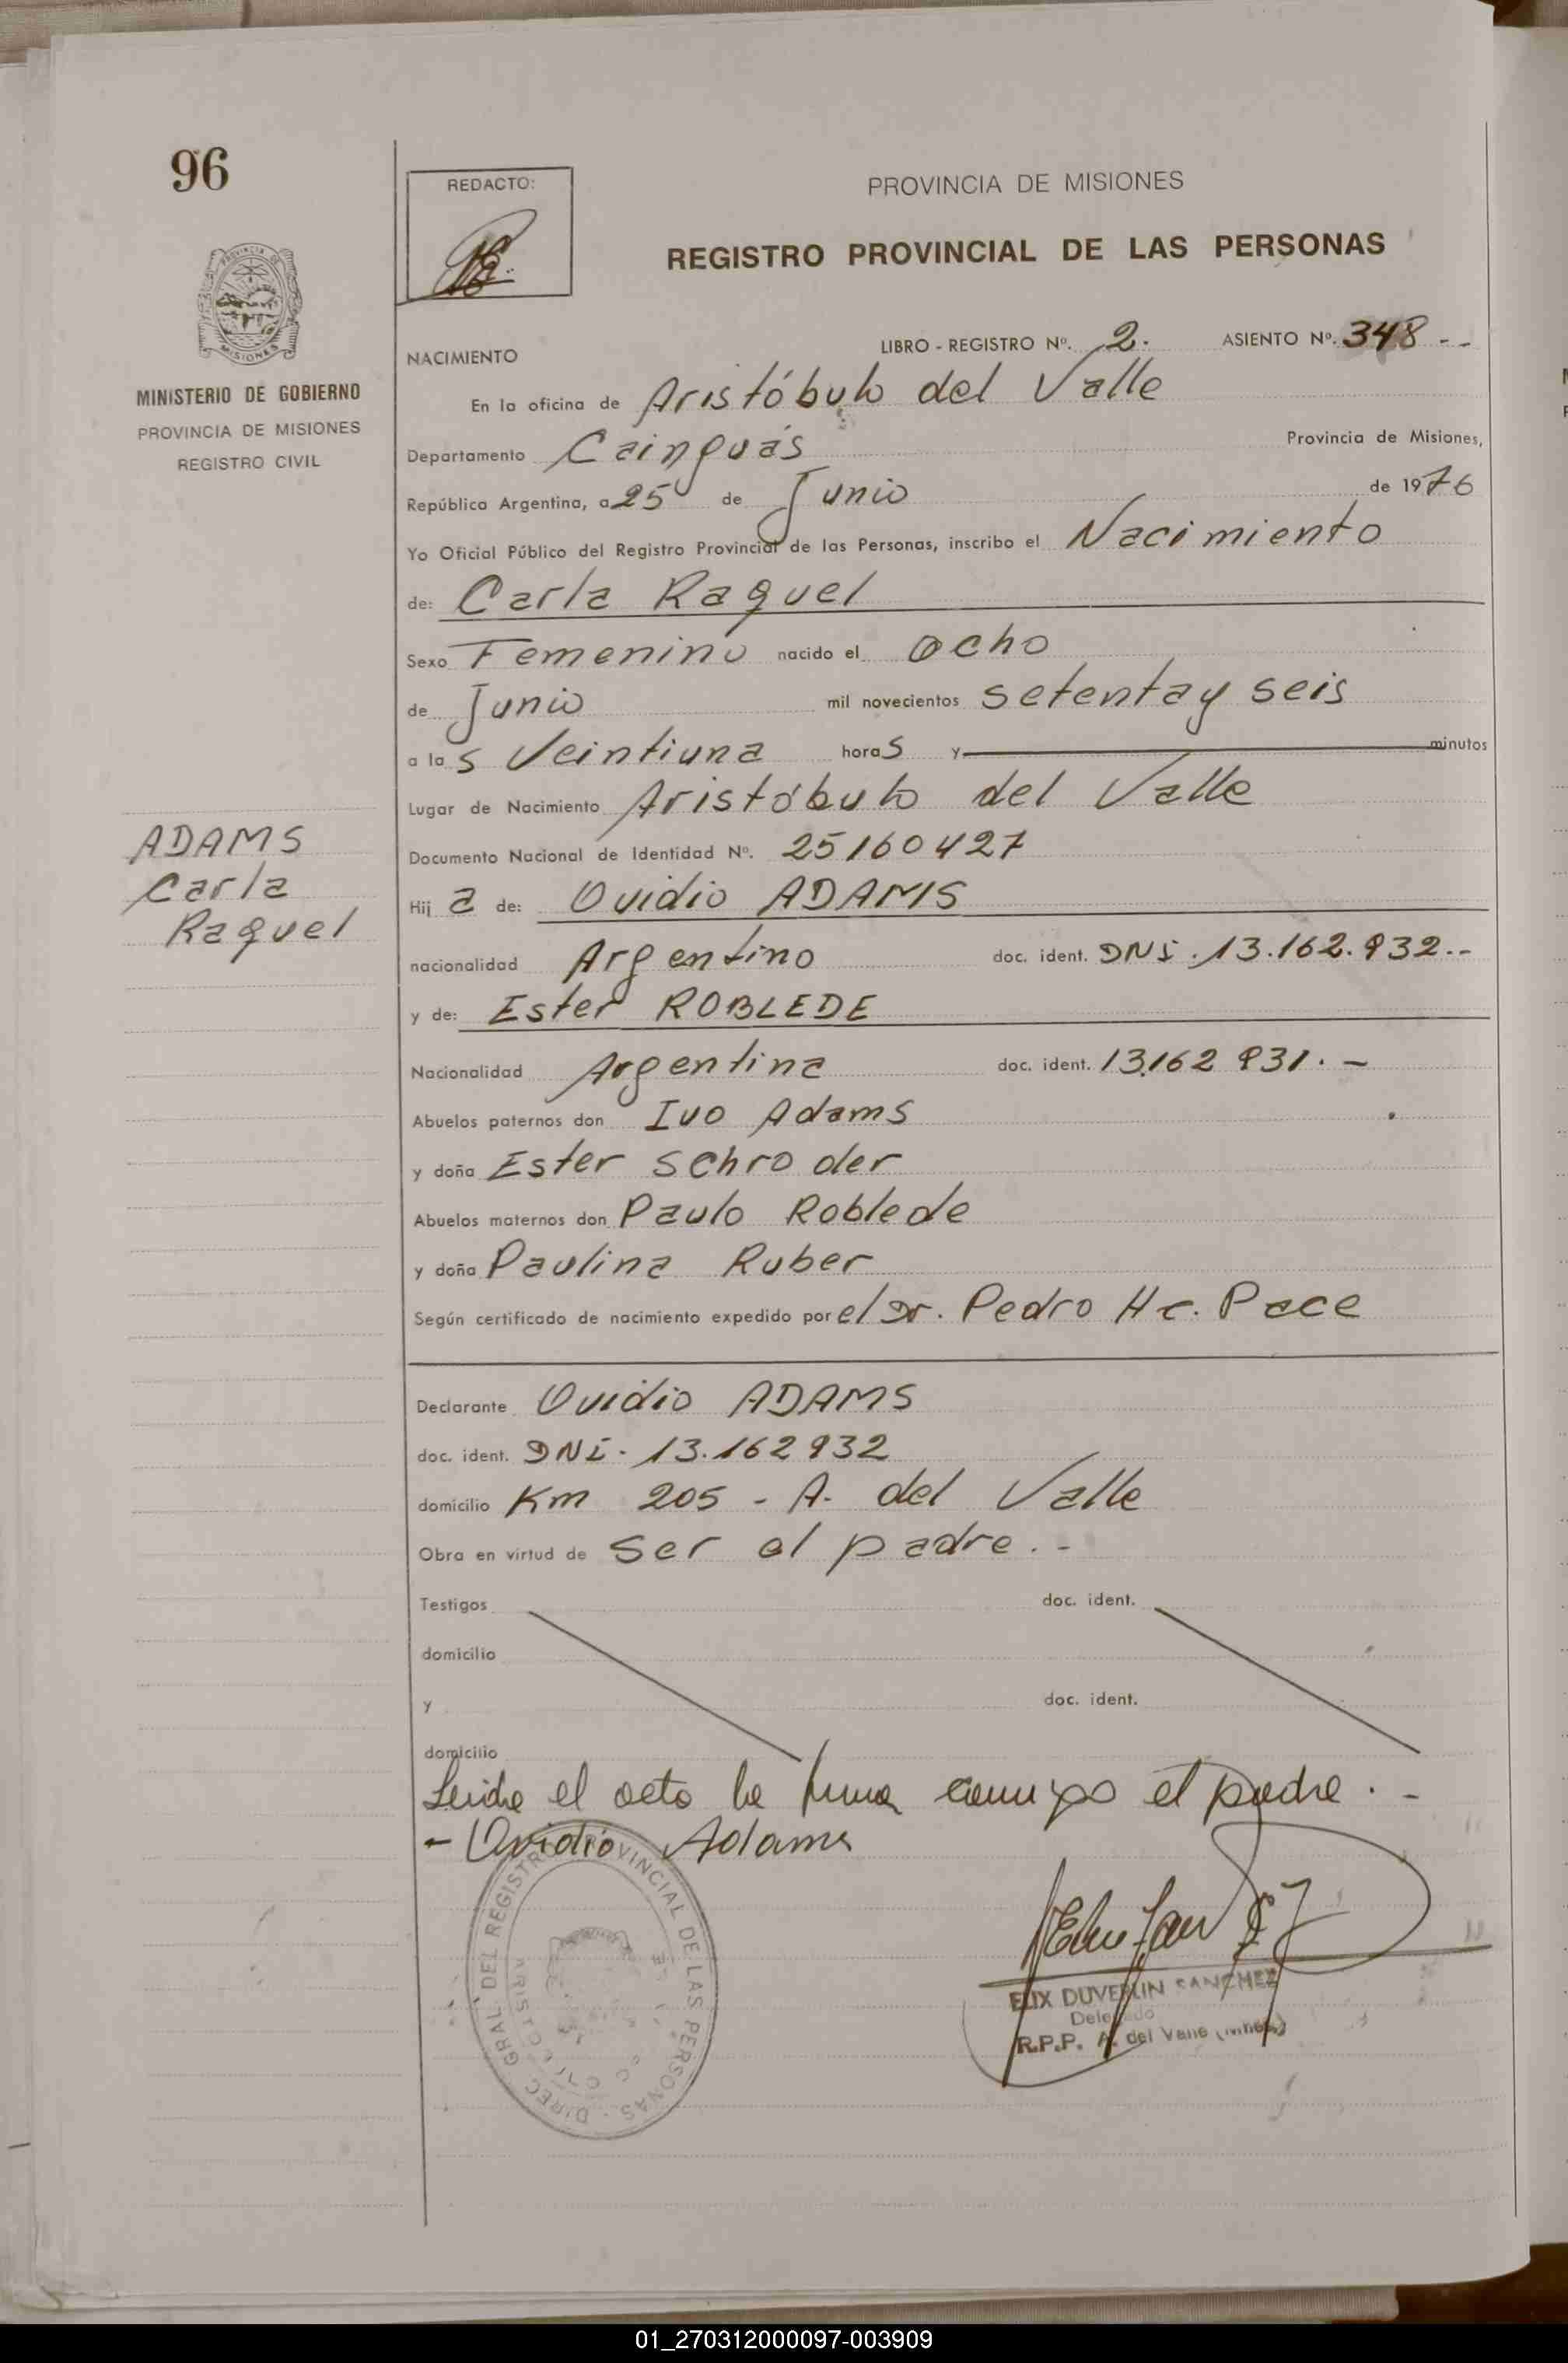 96
REDACTO:
PROVINCIA DE MISIONES
REGISTRO PROVINCIAL DE LAS PERSONAS
MINISTERIO DE GOBIERNO
PROVINCIA DE MISIONES
REGISTRO CIVIL
NACIMIENTO LIBRO - REGISTRO Nº. 2. ASIENTO Nº. 348 - -
En la oficina de Aristóbulo del Valle
Departamento Cainguás Provincia de Misiones,
República Argentina, a 25 de Junio de 1976
Yo Oficial Público del Registro Provincial de las Personas, inscribo el Nacimiento
de: Carla Raquel
Sexo Femenino nacido el ocho
de Junio mil novecientos setenta y seis
a las Veintiuna horas y minutos
Lugar de Nacimiento Aristóbulo del Valle
ADAMS
Carla
Raquel
Documento Nacional de Identidad Nº. 25160427
Hija de: Ovidio ADAMS
nacionalidad Argentino doc. ident. DNI. 13.162.932.--
y de: Ester ROBLEDE
Nacionalidad Argentina doc. ident. 13.162 931. -
Abuelos paternos don Ivo Adams
y doña Ester Schroder
Abuelos maternos don Paulo Roblede
y doña Paulina Ruber
Según certificado de nacimiento expedido por el Dr. Pedro Hc. Pace
Declarante Ovidio ADAMS
doc. ident. DNI - 13.162932
domicilio Km 205 - A. del Valle
Obra en virtud de ser el padre. -
Testigos doc. ident.
domicilio
y doc. ident.
domicilio
Leida el acta la firma conmigo el padre. -
- Ovidio Adams
DIREC. GRAL. DEL REGISTRO PROVINCIAL DE LAS PERSONAS
ELIX DUVERLIN SANCHEZ
Delegado
R.P.P. A. del Valle (Mnes.)
01_270312000097-003909